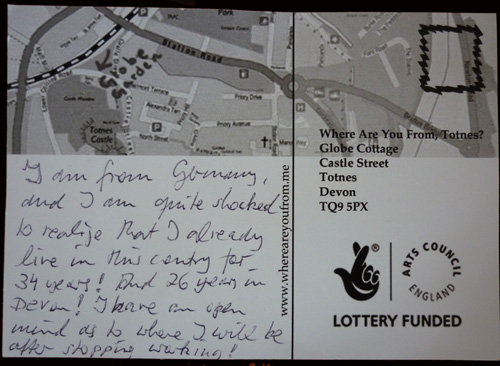 Park
Station Road
Priory Drive
Priory Avenue
North Street
Totnes Castle
P
P
"I am from Germany,
and I am quite shocked
to realize that I already
live in this contry for
34 years! And 26 years in
Devon! I have an open
mind as to where I will be
after stopping working!"
www.whereareyoufrom.me
Where Are You From, Totnes?
Globe Cottage
Castle Street
Totnes
Devon
TQ9 5PX
®
ARTS COUNCIL
ENGLAND
LOTTERY FUNDED